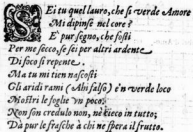 SEi tu quel lauro, che si verde Amore
Mi dipinse nel core?
E' pur segno, che fosti
Per me secco, se sei per altri ardente
Di foco sì repente.
Ma tu mi tien nascosti
Gli aridi rami (Ahi falso) e'n verde loco
Mostri le foglie vn poco.
Non son credulo non, nè cieco in tutto;
Dà pur le frasche à chi ne spera il frutto.